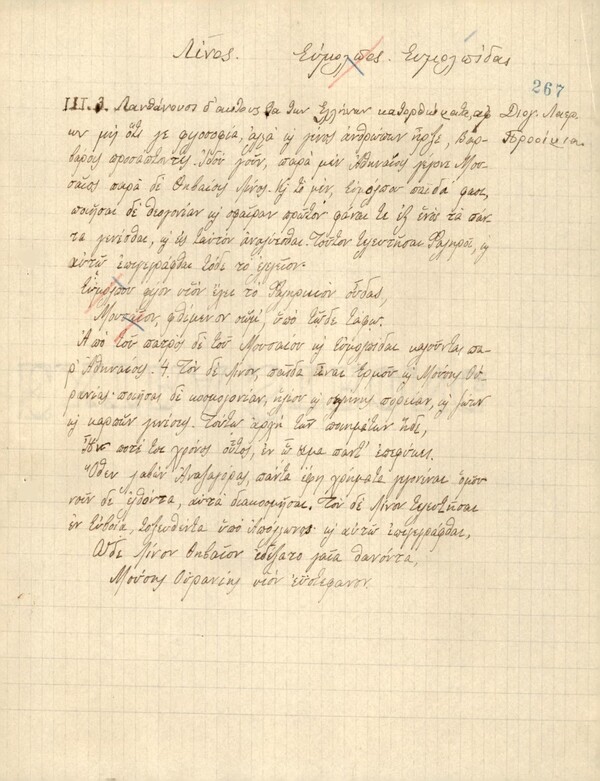 Λῖνος. Εὔμολπος. Εὐμολπίδας
267
III. 3. Λανθάνουσι δ' αὑτοὺς τα των Ἑλλήνων κατορθώματα, αφ' Διογ. Λαερ.
ων μὴ ὅτι γε φιλοσοφία, αλλὰ καὶ γένος ἀνθρώπων ἦρξε, βαρ- Προοίμια.
βάροις προσάπτοντες. Ἰδοὺ γοῦν, παρὰ μὲν Ἀθηναίοις γέγονε Μου-
σαῖος παρὰ δὲ Θηβαίοις Λίνος. Καὶ τὸ μὲν, Εὐμόλπου παῖδά φασι,
ποιῆσαι δὲ θεογονίαν καὶ σφαῖραν πρῶτον· φάναι τε ἐξ ἑνὸς τὰ παν-
τα γενέσθαι, καὶ εἰς ταὐτὸν ἀναλύεσθαι. Τοῦτον τελευτῆσαι Φαληροῖ, καὶ
αὐτῷ ἐπιγεγράφθαι τόδε τὸ ἐλεγεῖον·
Εὐμόλπου φίλον υἱὸν ἔχει τὸ Φαληρικὸν οὖδας,
Μουσαῖον, φθίμενον σῶμ', ὑπὸ τῷδε τάφῳ.
Ἀπὸ τοῦ πατρὸς δὲ τοῦ Μουσαίου καὶ Εὐμολπίδαι καλοῦνται πα-
ρ' Ἀθηναίοις. 4. Τὸν δὲ Λίνον, παῖδα εἶναι Ἑρμοῦ καὶ Μούσης Οὐ-
ρανίας· ποιῆσαι δὲ κοσμογονίαν, ἡλίου καὶ σελήνης πορείαν, καὶ ζώων
καὶ καρπῶν γενέσεις. Τούτῳ ἀρχὴ τῶν ποιημάτων ἥδε,
Ἦν ποτέ τοι χρόνος οὗτος, ἐν ᾧ ἅμα πάντ' ἐπεφύκει.
Ὅθεν λαβὼν Ἀναξαγόρας, πάντα ἔφη χρήματα γεγονέναι ὁμοῦ·
νοῦν δὲ ἐλθόντα, αὐτὰ διακοσμῆσαι. Τὸν δὲ Λίνον τελευτῆσαι
ἐν Εὐβοίᾳ, τοξευθέντα ὑπὸ Ἀπόλλωνος· καὶ αὐτῷ ἐπιγεγράφθαι,
Ὧδε Λίνον Θηβαῖον ἐδέξατο γαῖα θανόντα,
Μούσης Οὐρανίης υἱὸν ἐϋστεφάνου.